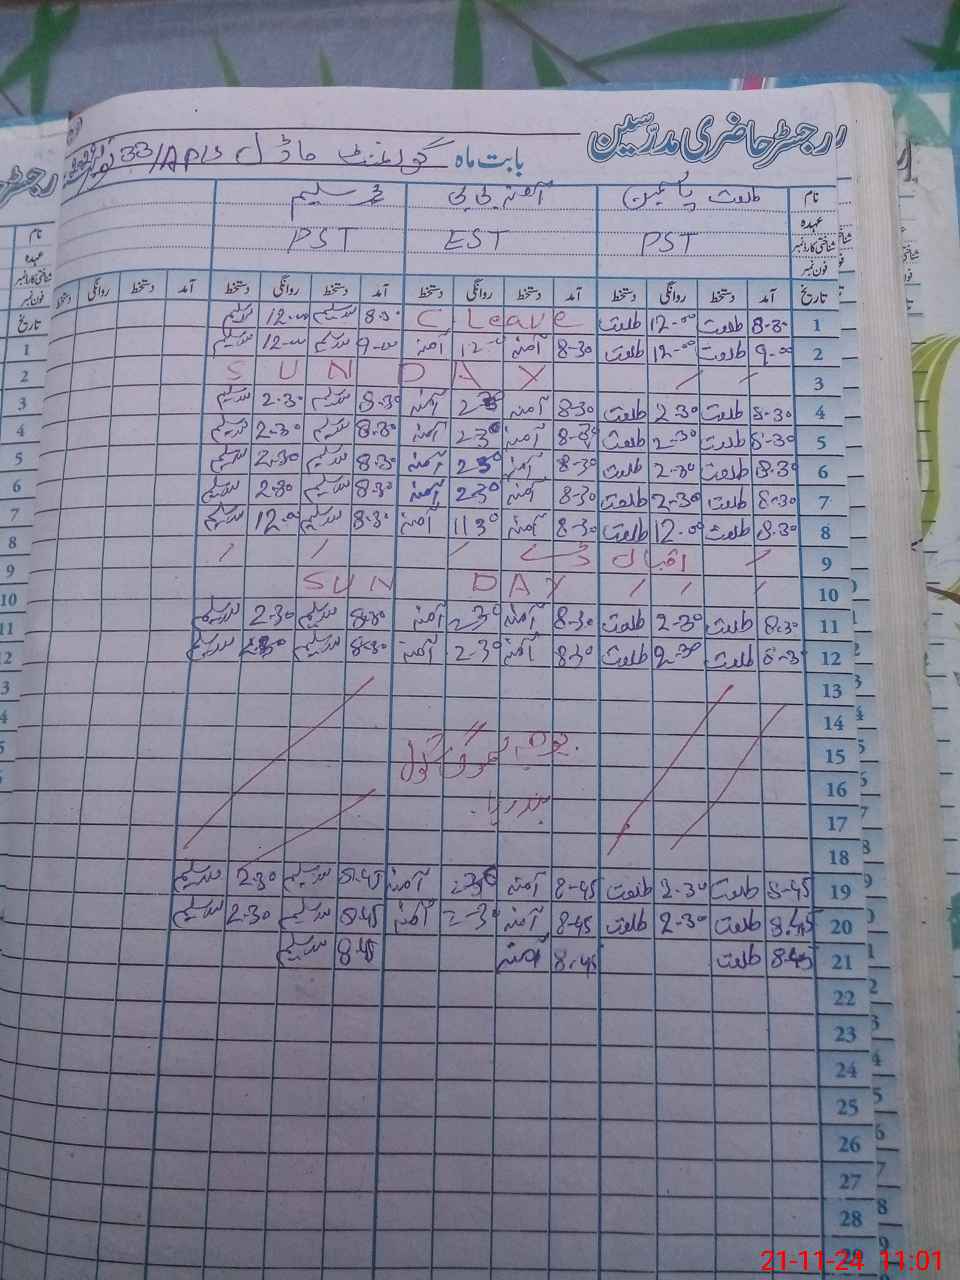 رجسٹر حاضری مدرسین
بابت ماہ گورنمنٹ ماڈل 33/APls نومبر 2024
نام طلعت یاسمین آمنہ بی بی محمد سلیم
عہدہ
شناختی کارڈ نمبر PST EST PST
فون نمبر
تاریخ آمد دستخط روانگی دستخط آمد دستخط روانگی دستخط آمد دستخط روانگی دستخط آمد دستخط روانگی دستخط
1 8-30 طلعت 12-00 طلعت C. Leave 8-30 سلیم 12-00 سلیم
2 9-00 طلعت 12-00 طلعت 8-30 آمنہ آمنہ 9-00 سلیم 12-00 سلیم
3 SUNDAY
4 8-30 طلعت 2-30 طلعت 8-30 آمنہ 2-30 آمنہ 8-30 سلیم 2-30 سلیم
5 8-30 طلعت 2-30 طلعت 8-30 آمنہ 2-30 آمنہ 8-30 سلیم 2-30 سلیم
6 8-30 طلعت 2-30 طلعت 8-30 آمنہ 2-30 آمنہ 8-30 سلیم 2-30 سلیم
7 8-30 طلعت 2-30 طلعت 8-30 آمنہ 2-30 آمنہ 8-30 سلیم 2-30 سلیم
8 8-30 طلعت 12-00 طلعت 8-30 آمنہ 1130 آمنہ 8-30 سلیم 12-00 سلیم
9 اقبال ڈے
10 SUN DAY
11 8-30 طلعت 2-30 طلعت 8-30 آمنہ 2-30 آمنہ 8-30 سلیم 2-30 سلیم
12 8-30 طلعت 2-30 طلعت 8-30 آمنہ 2-30 آمنہ 8-30 سلیم 2-30 سلیم
13
14
15 سکول
16
17
18
19 8-45 طلعت 2-30 طلعت 8-45 آمنہ 2-30 آمنہ 8-45 سلیم 2-30 سلیم
20 8-45 طلعت 2-30 طلعت 8-45 آمنہ 2-30 آمنہ 8-45 سلیم 2-30 سلیم
21 8-45 طلعت 8-45 آمنہ 8-45 سلیم
22
23
24
25
26
27
28
29
21-11-24 11:01